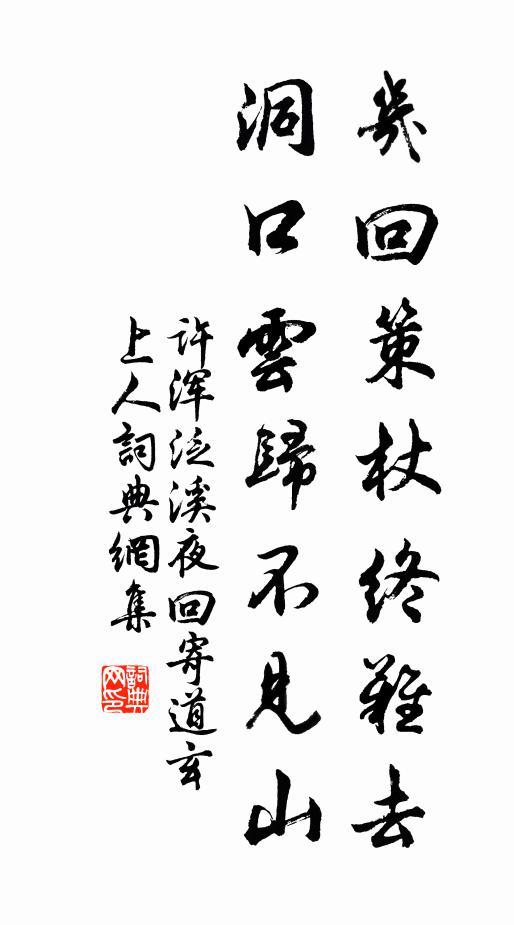 幾回策杖終難去
洞口雲歸不見山
许浑泛溪夜回寄道玄
上人詞典網集
詞典
网印